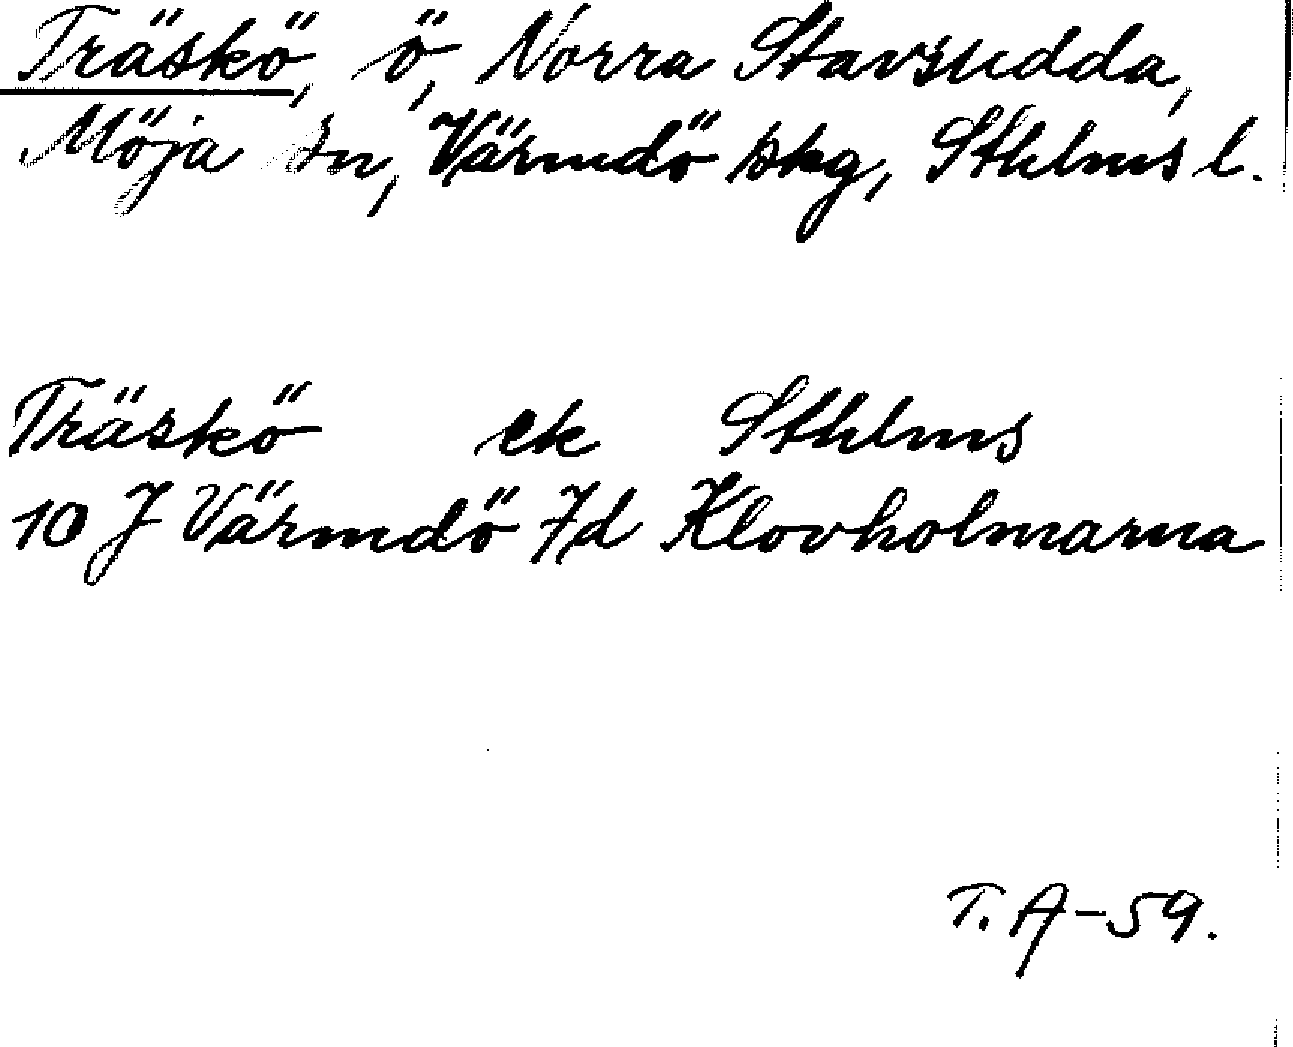 Träskö, ö, Norra Stavsudda,
Möja sn, Värmdö skg, Sthlms l.
Träskö ek Sthlms
10 J Värmdö 7d Klovholmarna
T. A-59.